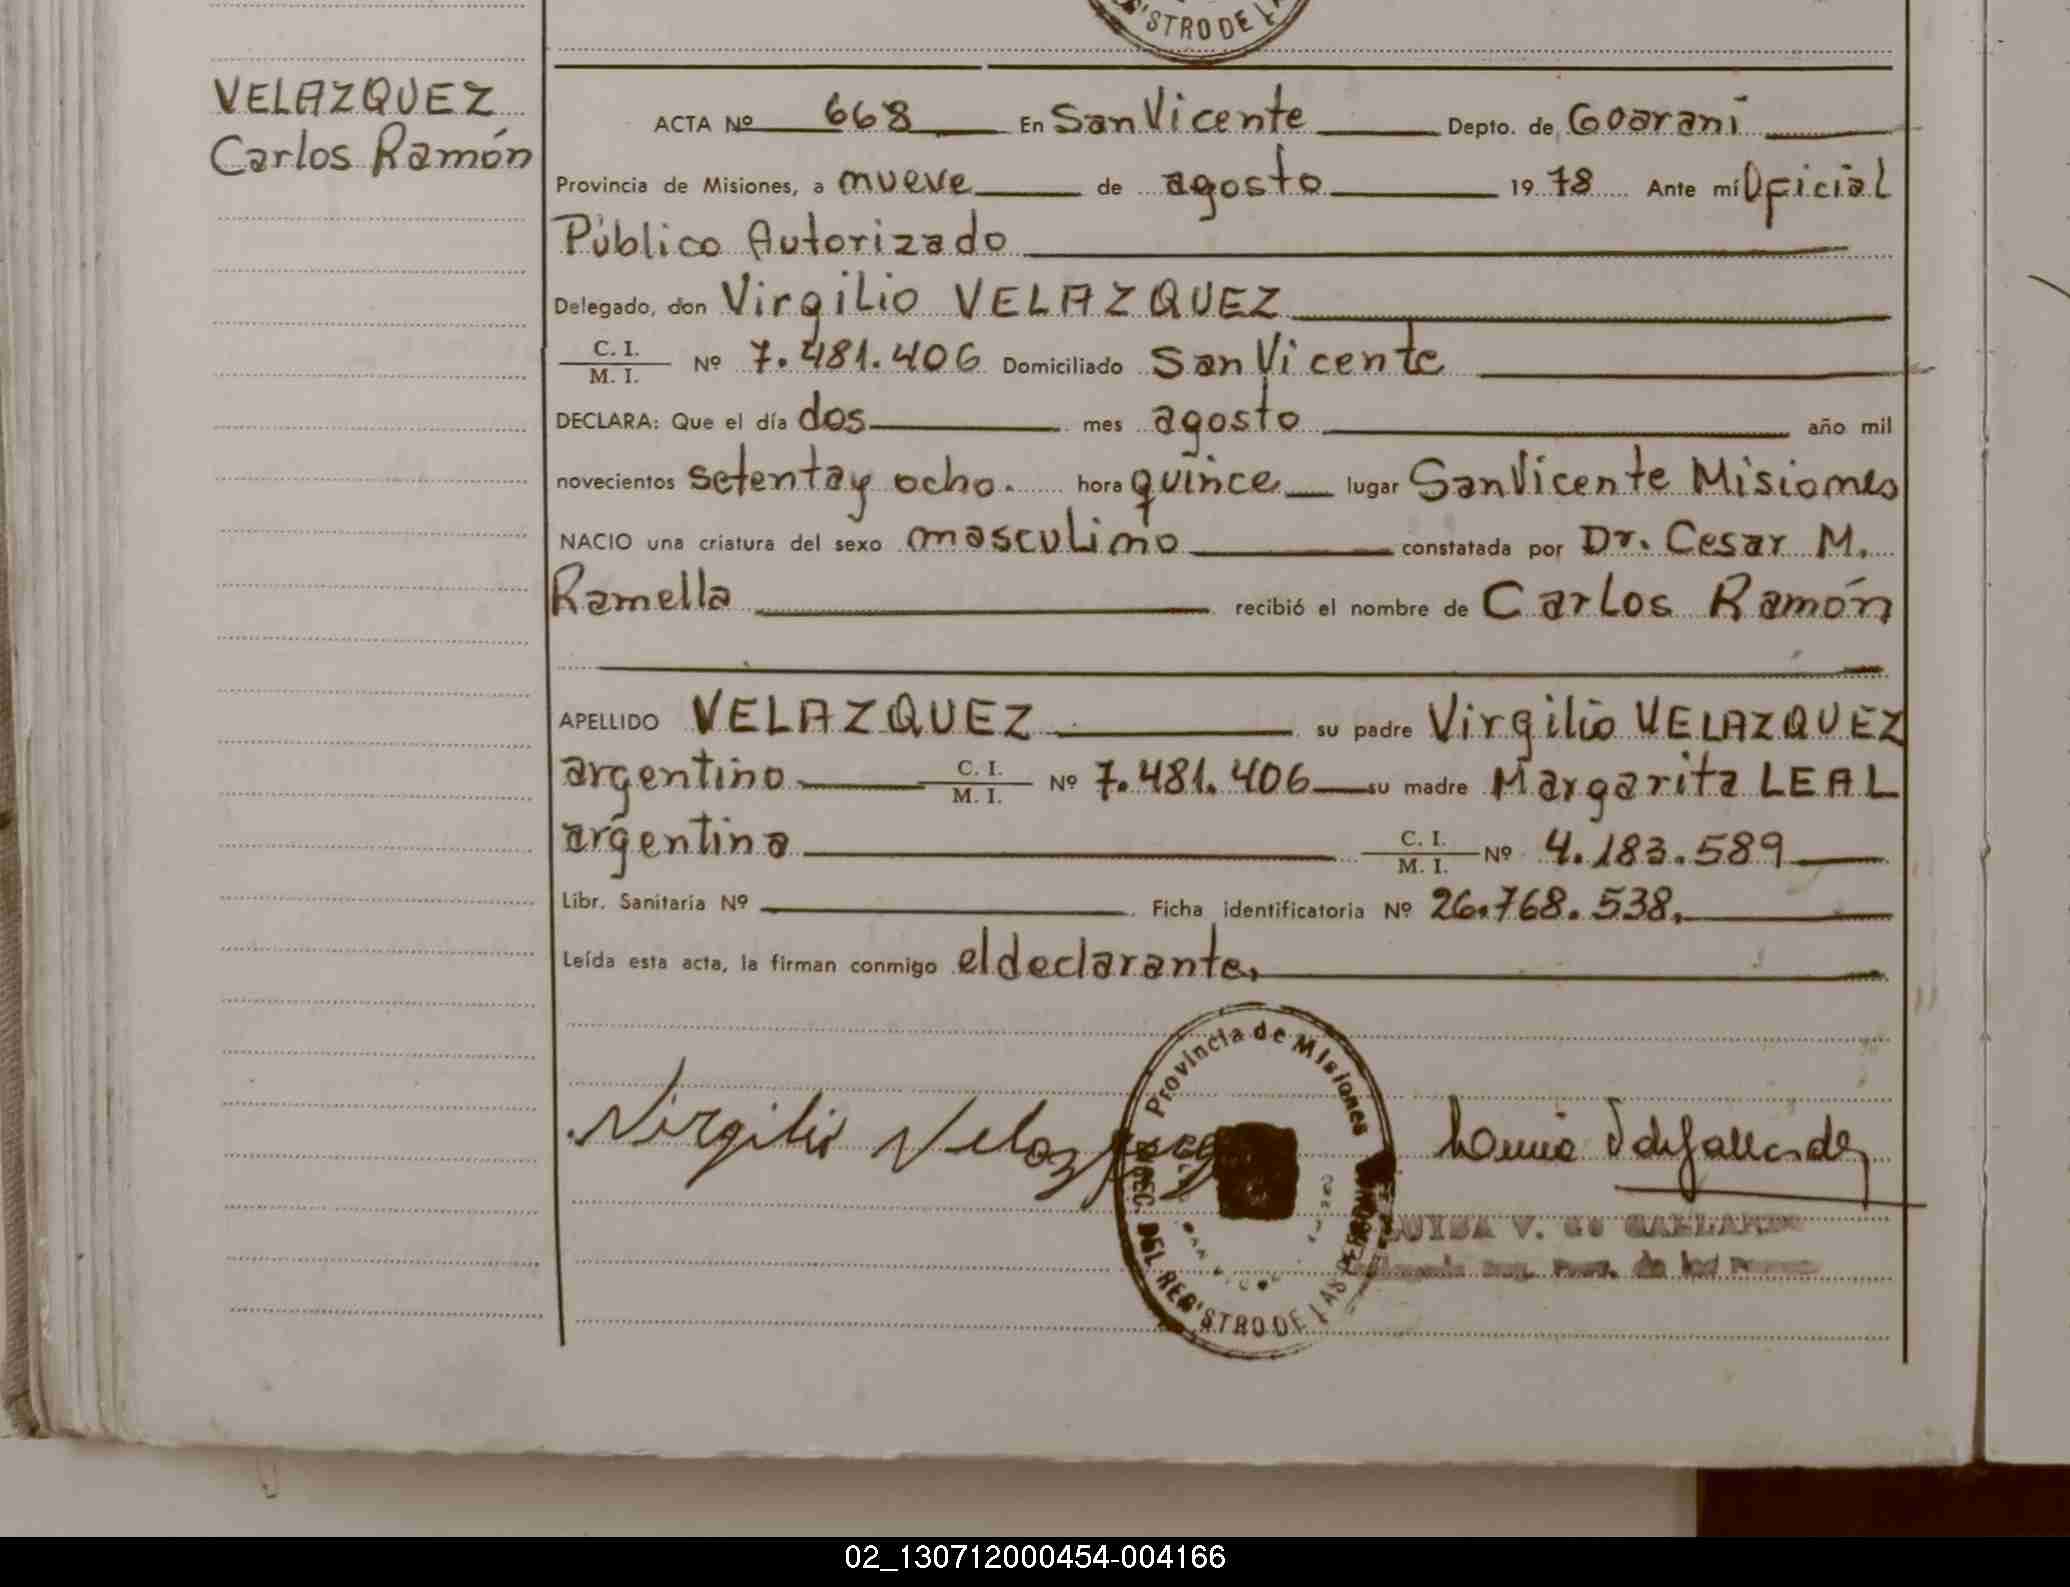 STRO DE LA
VELAZQUEZ
Carlos Ramón
ACTA Nº 668 En San Vicente Depto. de Goaraní
Provincia de Misiones, a nueve de agosto 19 78 Ante mí Oficial
Público Autorizado
Delegado, don Virgilio VELAZQUEZ
C. I.
M. I. Nº 7.481.406 Domiciliado San Vicente
DECLARA: Que el día dos mes agosto año mil
novecientos setenta y ocho. hora quince lugar San Vicente Misiones
NACIO una criatura del sexo masculino constatada por Dr. Cesar M.
Ramella recibió el nombre de Carlos Ramón
APELLIDO VELAZQUEZ su padre Virgilio VELAZQUEZ
argentino C. I. M. I. Nº 7.481.406 su madre Margarita LEAL
argentina C. I. M. I. Nº 4.183.589
Libr. Sanitaria Nº Ficha identificatoria Nº 26.768.538.
Leída esta acta, la firman conmigo el declarante.
Provincia de Misiones
DEL REGISTRO DE LAS
Virgilio Velazquez
LUISA V. de GALLARDO
02_130712000454-004166